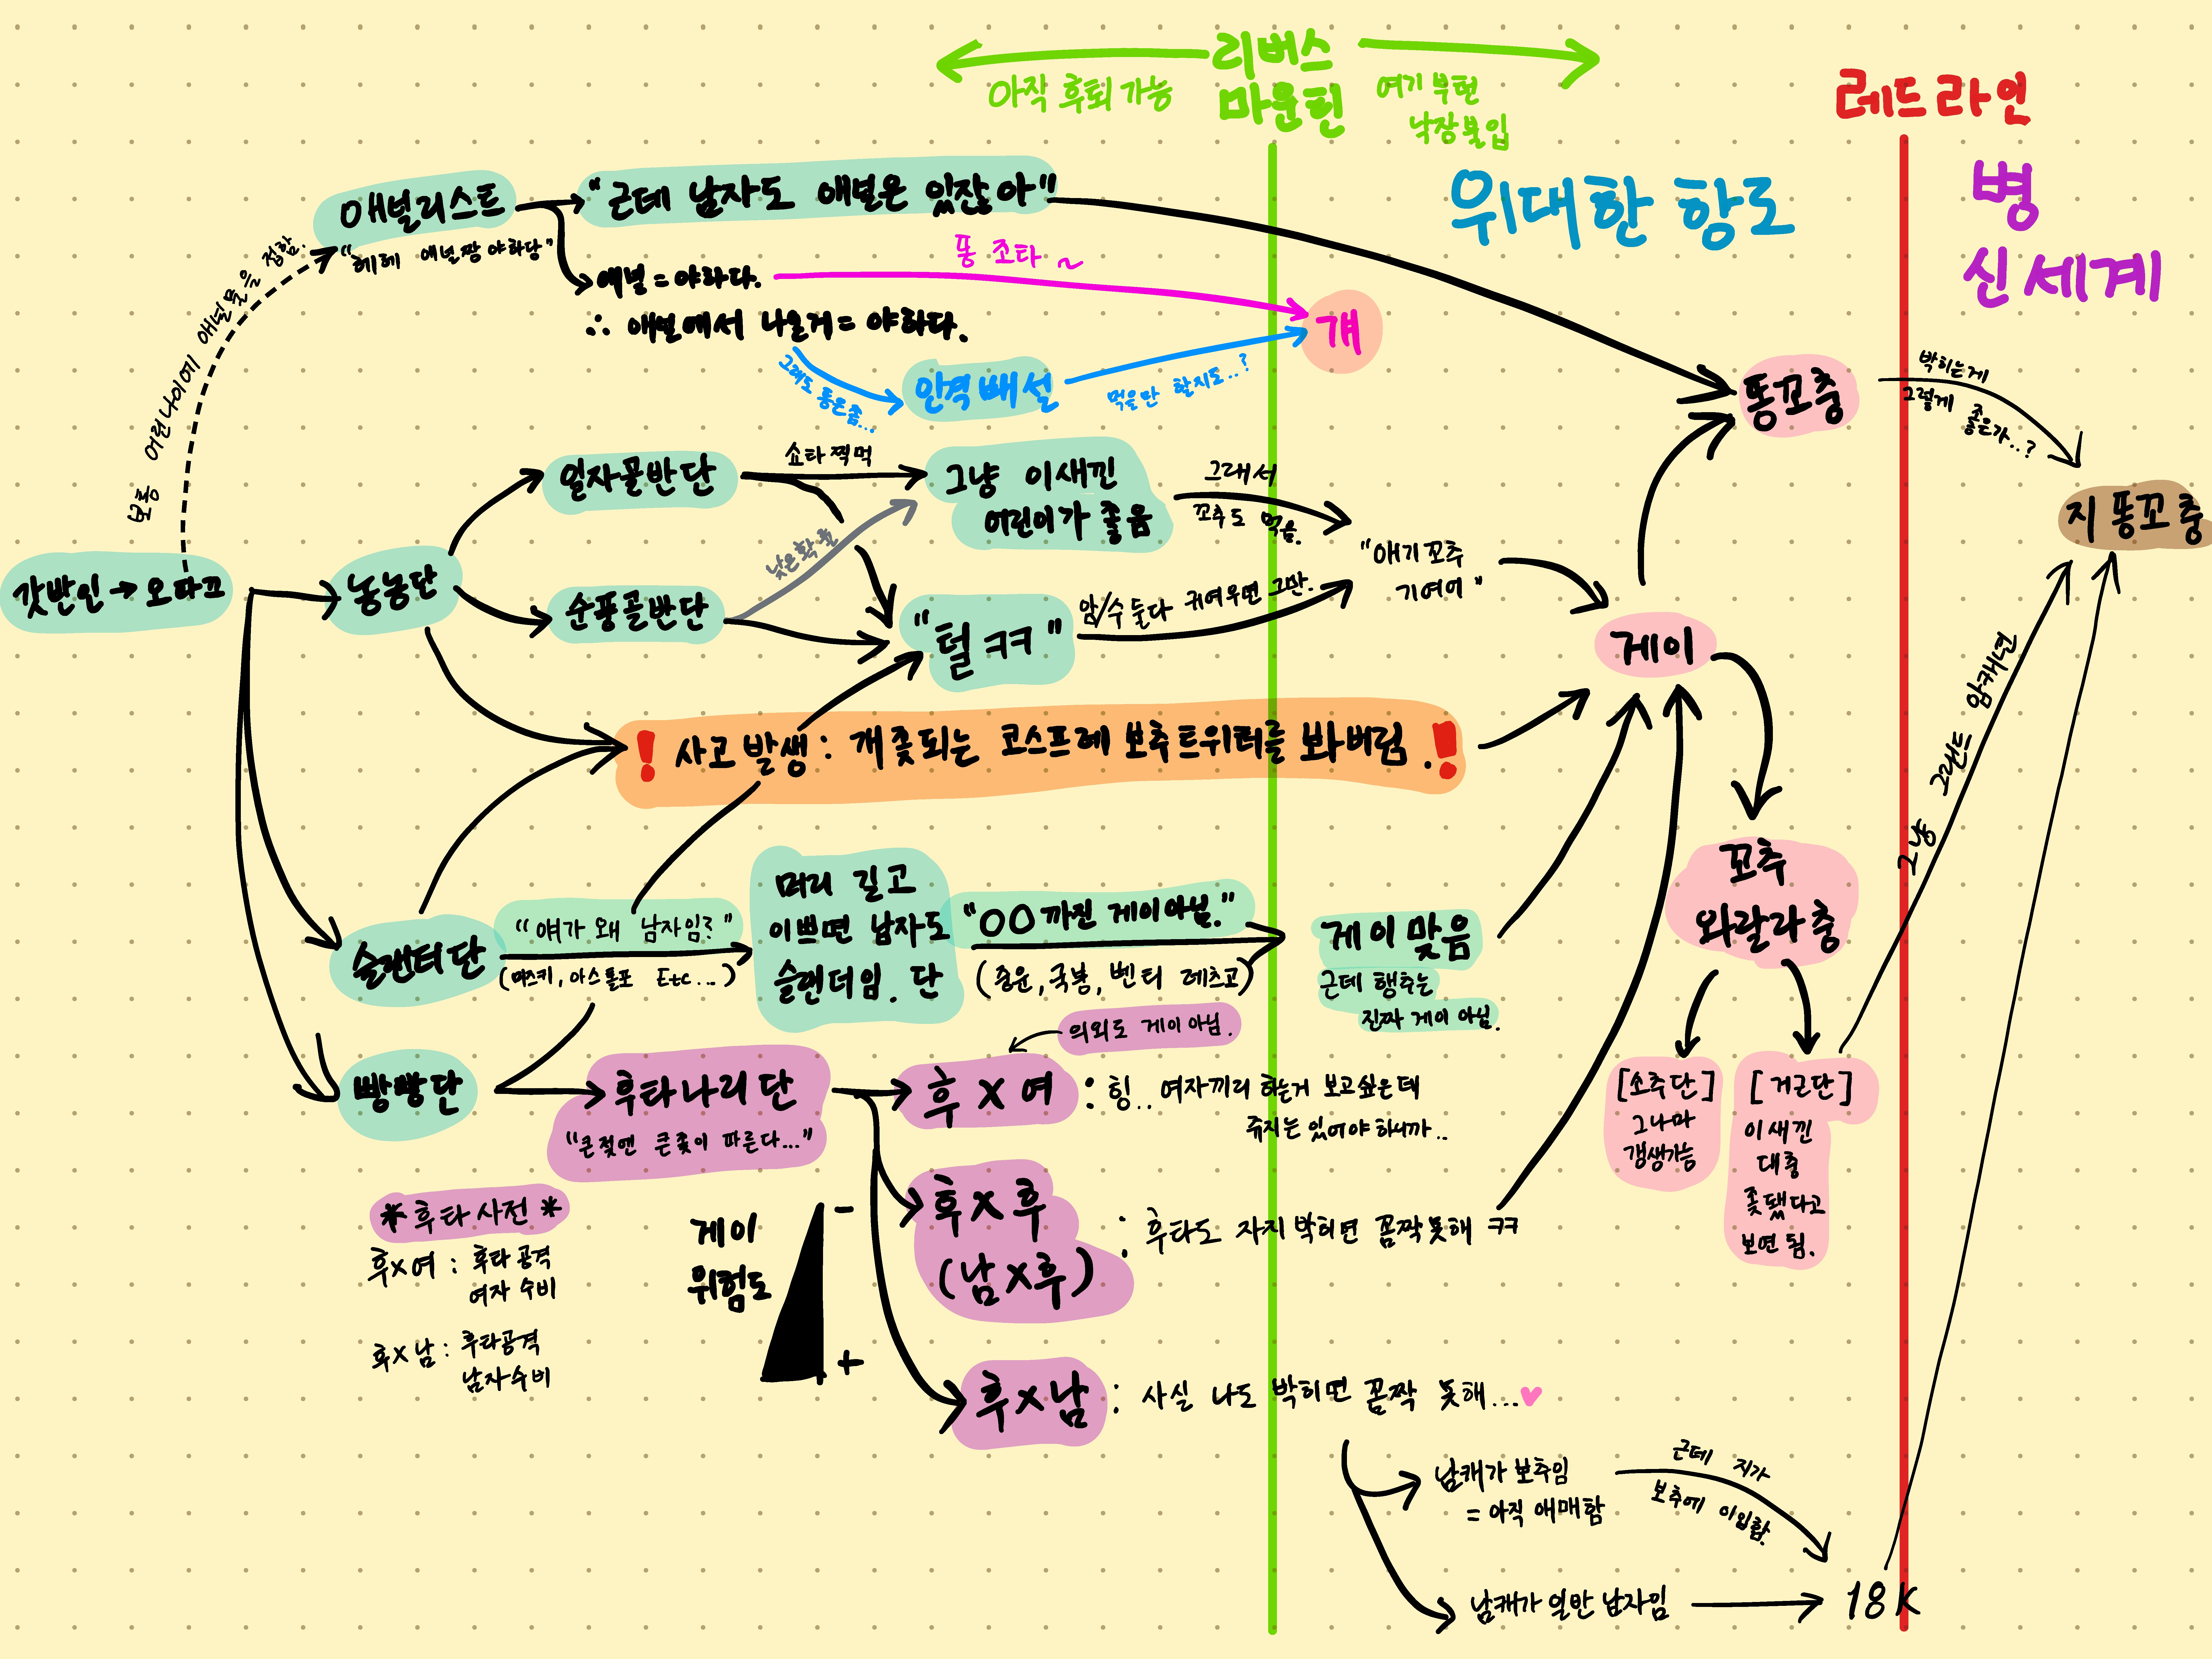 리버스
마운틴
아작 후퇴 가능
여기 부턴
낙장불입
레드라인
위대한 항로
병
신세계
애널리스트
"헤헤 애널짱 야하당"
"근데 남자도 애널은 있잖아"
보통 어린나이에 애널물을 접함.
애널 = 야하다.
∴ 애널에서 나온거 = 야하다.
똥 조타 ~
걔
그래도 똥은좀...
인격배설
먹을만 할지도..?
똥꼬충
박히는게
그렇게 좋은가..?
지 똥꼬충
갓반인→오따끄
농농단
일자골반단
쇼타찍먹
그냥 이새낀
어린이가 좋음
그래서
꼬추도 먹음.
낮은확률
순풍골반단
"털ㅋㅋ"
암/수 둘다 귀여우면 그만.
"애기꼬추
기여어"
게이
! 사고발생 : 개좆되는 코스프레 보추트위터를 봐버림. !
꼬추
와랄라충
그냥 그랜드 암캐년
슬랜더단
"얘가 왜 남자임?"
(마즈키, 아스톨포 Etc...)
머리 길고
이쁘면 남자도
슬랜더임. 단
"OO까진 게이아님."
(중윤, 국붕, 벤티 레츠고)
게이 맞음
근데 행추는
진짜 게이 아님.
의외도 게이 아님.
빵빵단
후타나리단
"큰젖엔 큰좆이 따른다..."
후 X 여
: 힝.. 여자끼리 하는거 보고싶은데
쥬지는 있어야 하니까..
[소추단]
그나마
갱생가능
[거근단]
이새낀
대충
좆됐다고
보면 됨.
*후타사전*
후x여 : 후타공격
여자 수비
후x남 : 후타공격
남자수비
게이
위험도
-
+
후x후
(남x후)
: 후타도 자지 박히면 꼼짝못해 ㅋㅋ
후x남
: 사실 나도 박히면 꼼짝 못해...♥
남캐가 보추임
= 아직 애매함
근데 지가
보추에 이입함.
남캐가 일반 남자임
18K